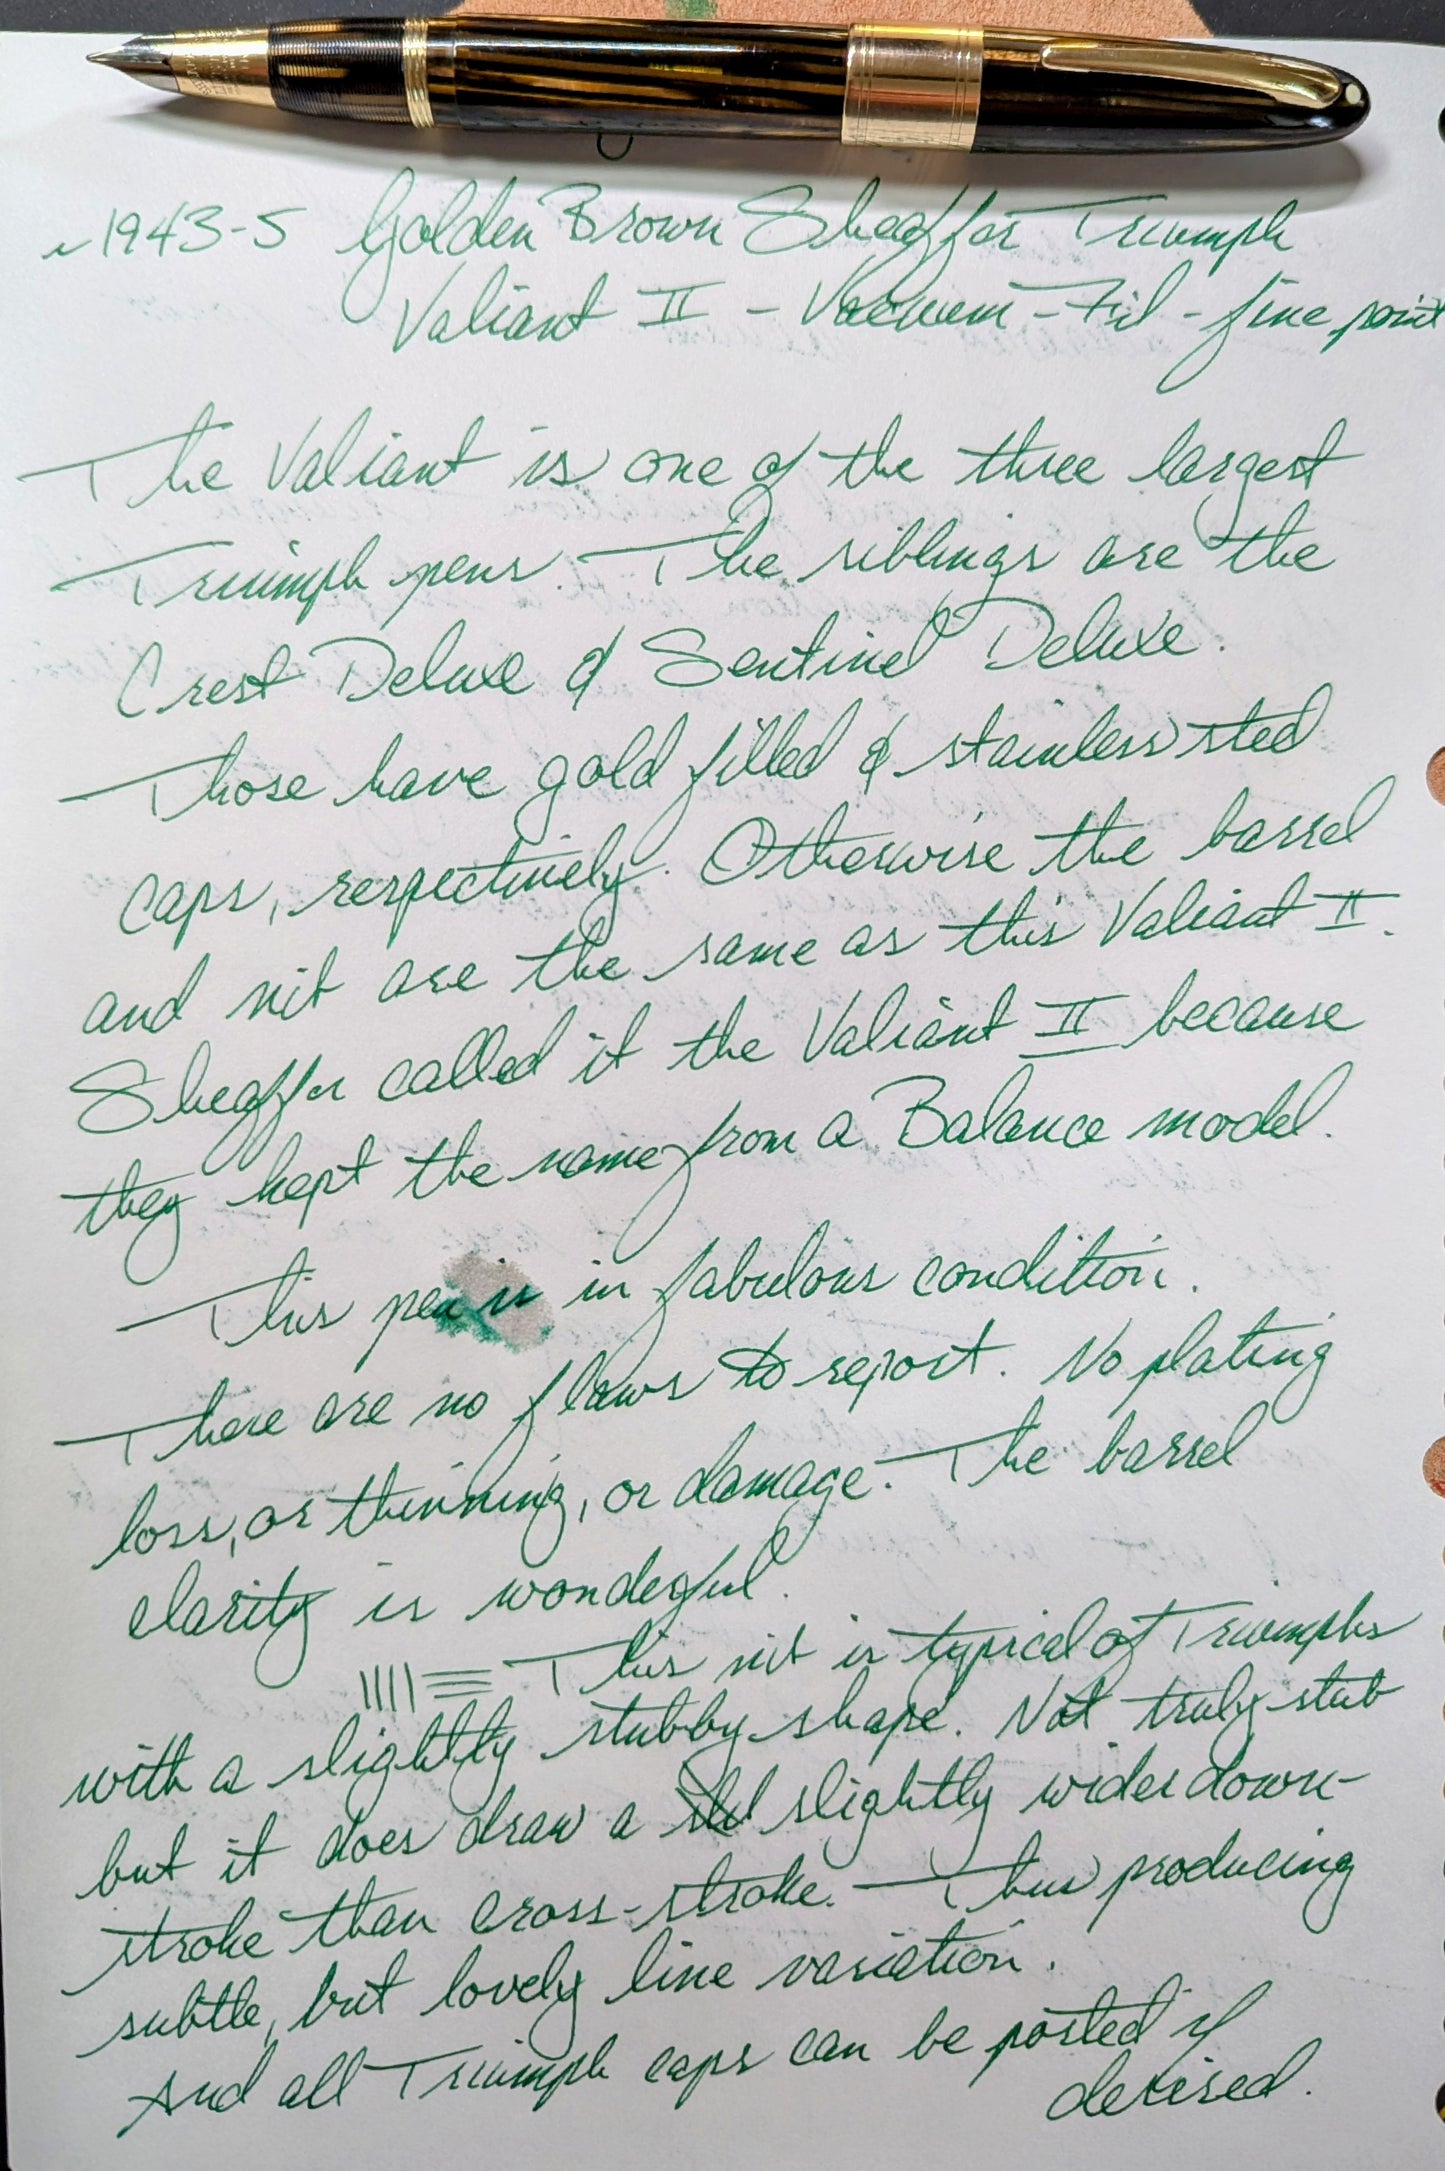 ~1943-5 Golden Brown Sheaffer Triumph
Valiant II - Vacuum-Fil - fine point
The Valiant is one of the three largest
Triumph pens. The siblings are the
Crest Deluxe & Sentinel Deluxe.
Those have gold filled & stainless steel
caps, respectively. Otherwise the barrel
and nib are the same as this Valiant II.
Sheaffer called it the Valiant II because
they kept the name from a Balance model.
This pen is in fabulous condition.
There are no flaws to report. No plating
loss, or thinning, or damage. The barrel
clarity is wonderful.
This nib is typical of Triumphs
with a slightly stubby shape. Not truly stub
but it does draw a slightly wider down-
stroke than cross-stroke. Thus producing
subtle, but lovely line variation.
And all Triumph caps can be posted if
desired.